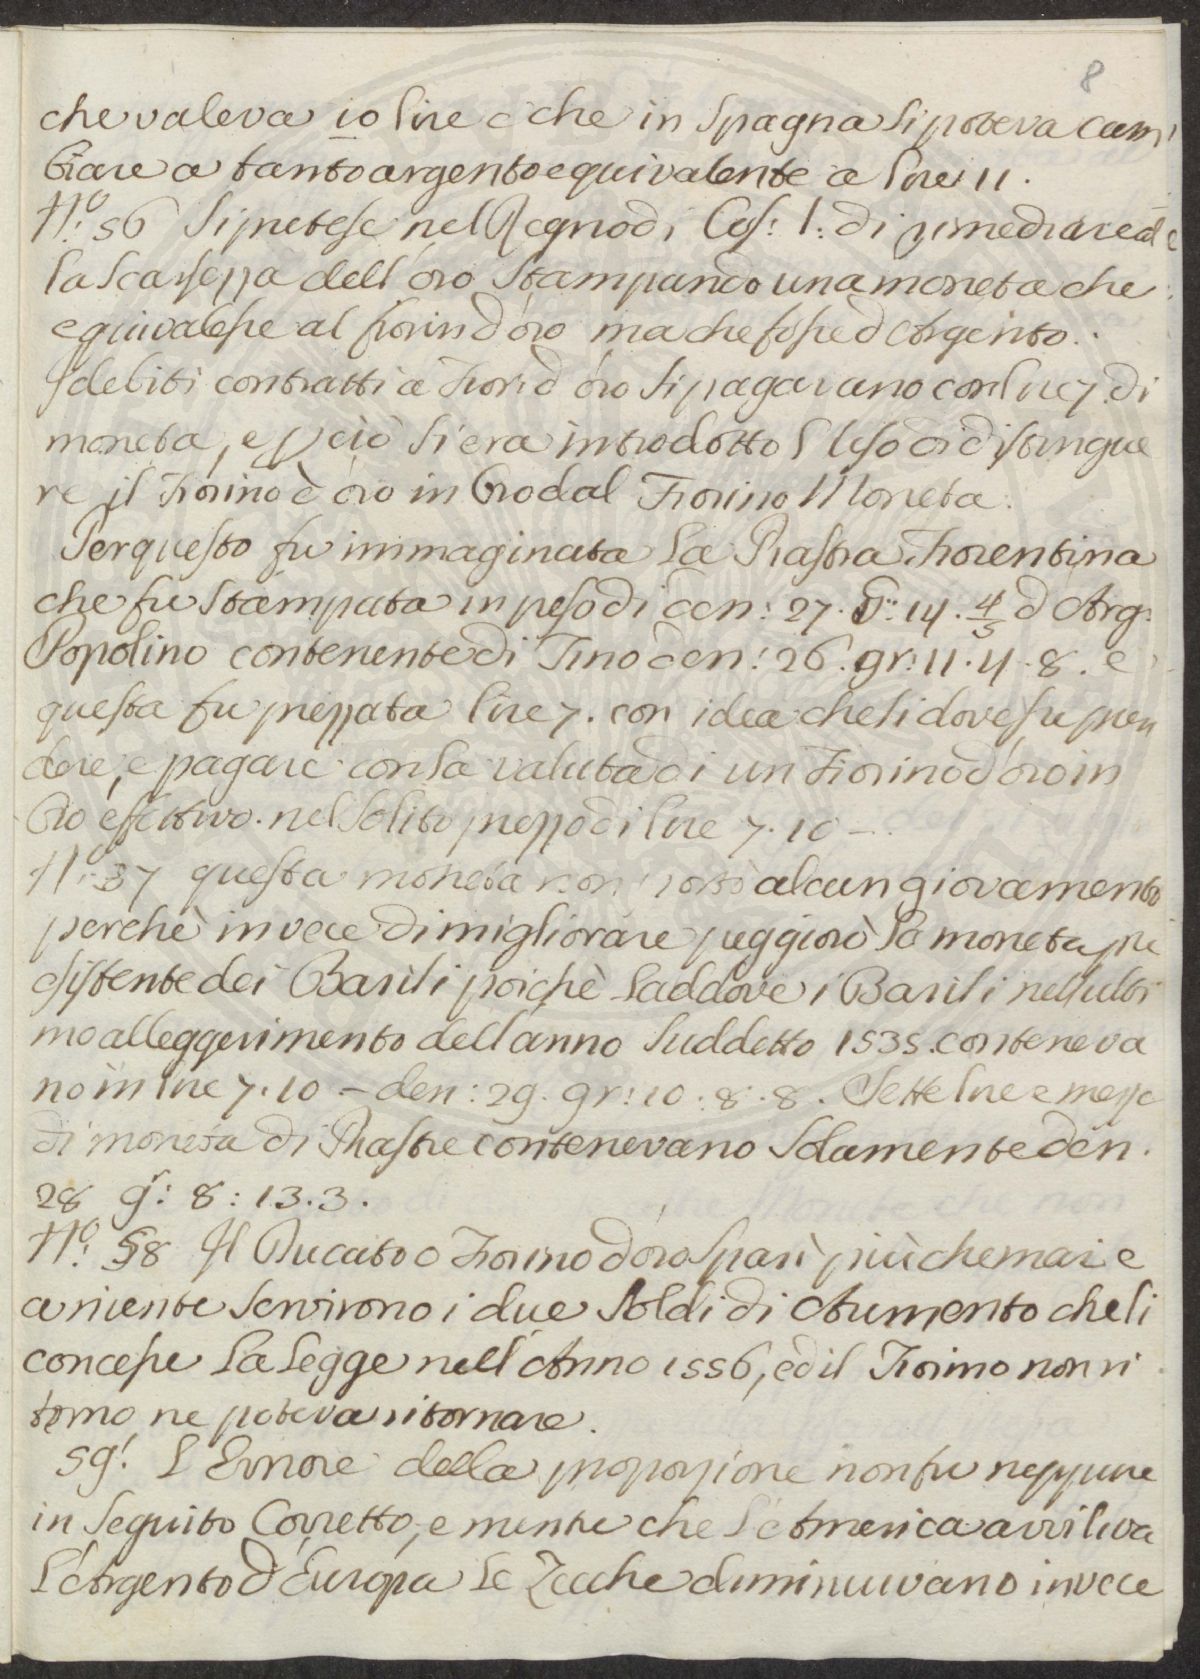 8
che valeva 10 lire e che in Spagna si poteva cam
biare a tanto argento equivalente a lire 11.
N.º 56 Si pretese nel Regno di Cos: I: di rimediare al
la scarsezza dell'oro stampando una moneta che
equivalesse al fiorin d'oro ma che fosse d'Argento.
I debiti contratti a Fior: d'oro si pagavano con lire 7. di
moneta, e p ciò si era introdotto l'Uso di distingue
re il Fiorino d'oro in Oro dal Fiorino Moneta.
Per questo fu immaginata la Piastra Fiorentina
che fu stampata in peso di den: 27. G: 14. 4/5 d'Arg:
Popolino contenente di Fino den: 26. gr: 11. 4. 8. e
questa fu prezzata lire 7. con idea che si dovesse pren
dere, e pagare con la valuta di un Fiorino d'oro in
Oro effettivo. nel solito prezzo di lire 7. 10 —.
N.º 57 questa moneta non portò alcun giovamento
perchè in vece di migliorare peggiorò la moneta pre
esistente dei Barili poichè laddove i Barili nell'ulti
mo alleggerimento dell'anno suddetto 1535. conteneva
no in lire 7. 10 – den: 29. gr: 10. 8. 8. Sette lire e mezzo
di moneta di Piastre contenevano solamente den.
28 gr: 8: 13. 3.
N.º 58 Il Ducato o Fiorino d'oro sparì più che mai e
a niente servirono i due soldi di Aumento che li
concesse la legge nell'Anno 1556, ed il Fiorino non ri
torno, ne poteva ritornare.
59: L'Errore della proporzione non fu neppure
in seguito Corretto, e mentre che l'America avviliva
l'Argento d'Europa le Zecche diminuivano invece